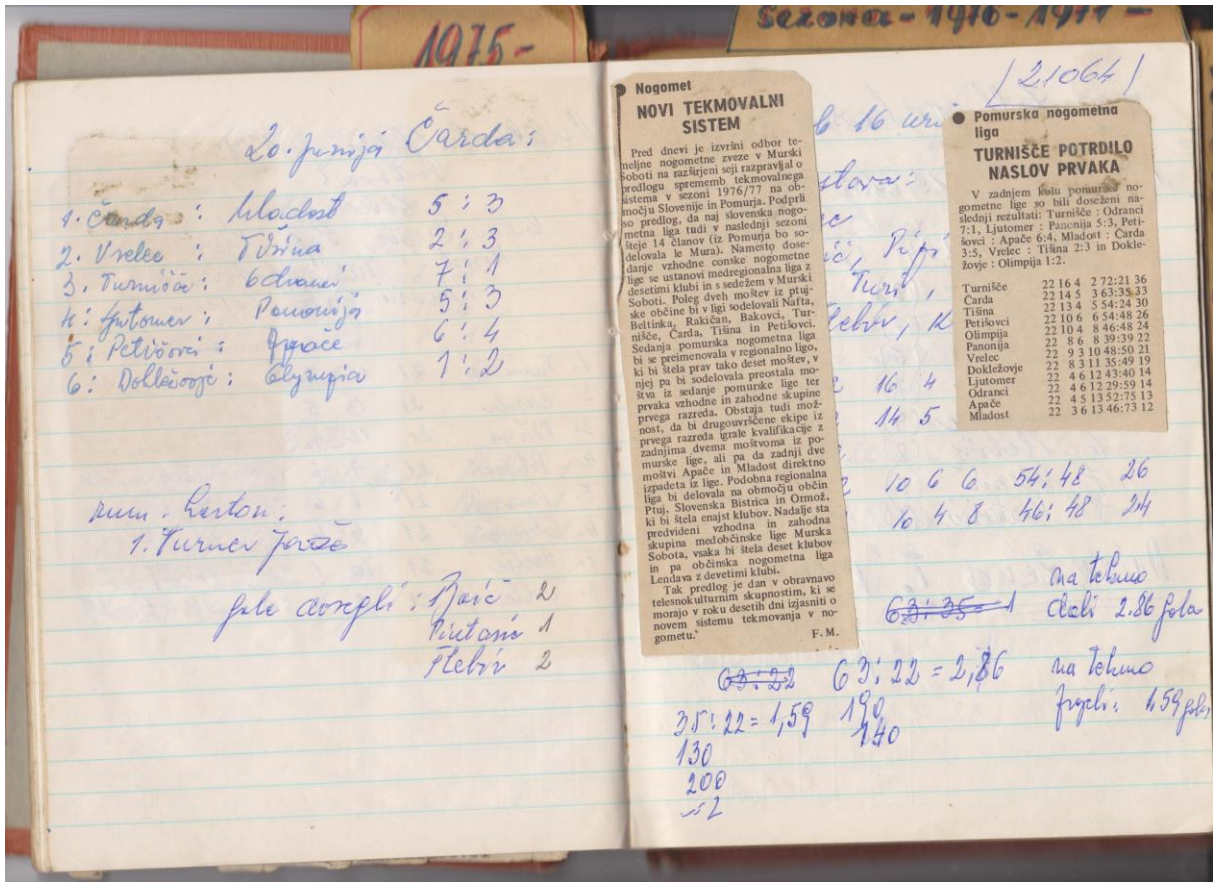 1975-
Sezona - 1976 - 1977 -
20. junija Čarda:
1. Čarda : Mladost 5 : 3
2. Vrelec : Tišina 2 : 3
3. Turnišče : Odranci 7 : 1
4: Ljutomer : Panonija 5 : 3
5: Petišovci : Apače 6 : 4
6: Dokležovje : Olympia 1 : 2
rum. karton:
1. Turner
gole dosegli : 2
1
Flebir 2
21064
16 uri
16 4
14 5
10 6 6 54 : 48 26
10 4 8 46 : 48 24
na tekmo
63 : 35 dali 2.86 gola
63 : 22 63 : 22 = 2,86 na tekmo
35 : 22 = 1,59 190 1.59 gola
130 140
200
2
Nogomet
NOVI TEKMOVALNI
SISTEM
Pred dnevi je izvršni odbor te-
meljne nogometne zveze v Murski
Soboti na razširjeni seji razpravljal o
predlogu sprememb tekmovalnega
sistema v sezoni 1976/77 na ob-
močju Slovenije in Pomurja. Podprli
so predlog, da naj slovenska nogo-
metna liga tudi v naslednji sezoni
šteje 14 članov (iz Pomurja bo so-
delovala le Mura). Namesto dose-
danje vzhodne conske nogometne
lige se ustanovi medregionalna liga z
desetimi klubi in s sedežem v Murski
Soboti. Poleg dveh moštev iz ptuj-
ske občine bi v ligi sodelovali Nafta,
Beltinka, Rakičan, Bakovci, Tur-
nišče, Čarda, Tišina in Petišovci.
Sedanja pomurska nogometna liga
bi se preimenovala v regionalno ligo,
ki bi štela prav tako deset moštev, v
njej pa bi sodelovala preostala mo-
štva iz sedanje pomurske lige ter
prvaka vzhodne in zahodne skupine
prvega razreda. Obstaja tudi mož-
nost, da bi drugouvrščene ekipe iz
prvega razreda igrale kvalifikacije z
zadnjima dvema moštvoma iz po-
murske lige, ali pa da zadnji dve
moštvi Apače in Mladost direktno
izpadeta iz lige. Podobna regionalna
liga bi delovala na območju občin
Ptuj, Slovenska Bistrica in Ormož,
ki bi štela enajst klubov. Nadalje sta
predvideni vzhodna in zahodna
skupina medobčinske lige Murska
Sobota, vsaka bi štela deset klubov
in pa občinska nogometna liga
Lendava z devetimi klubi.
Tak predlog je dan v obravnavo
telesnokulturnim skupnostim, ki se
morajo v roku desetih dni izjasniti o
novem sistemu tekmovanja v no-
gometu.
F. M.
Pomurska nogometna
liga
TURNIŠČE POTRDILO
NASLOV PRVAKA
V zadnjem kolu pomurske no-
gometne lige so bili doseženi na-
slednji rezultati: Turnišče : Odranci
7:1, Ljutomer : Panonija 5:3, Peti-
šovci : Apače 6:4, Mladost : Čarda
3:5, Vrelec : Tišina 2:3 in Dokle-
žovje : Olimpija 1:2.
Turnišče 22 16 4 2 72:21 36
Čarda 22 14 5 3 63:35 33
Tišina 22 13 4 5 54:24 30
Petišovci 22 10 6 6 54:48 26
Olimpija 22 10 4 8 46:48 24
Panonija 22 8 6 8 39:39 22
Vrelec 22 9 3 10 48:50 21
Dokležovje 22 8 3 11 35:49 19
Ljutomer 22 4 6 12 43:40 14
Odranci 22 4 6 12 29:59 14
Apače 22 4 5 13 52:75 13
Mladost 22 3 6 13 46:73 12